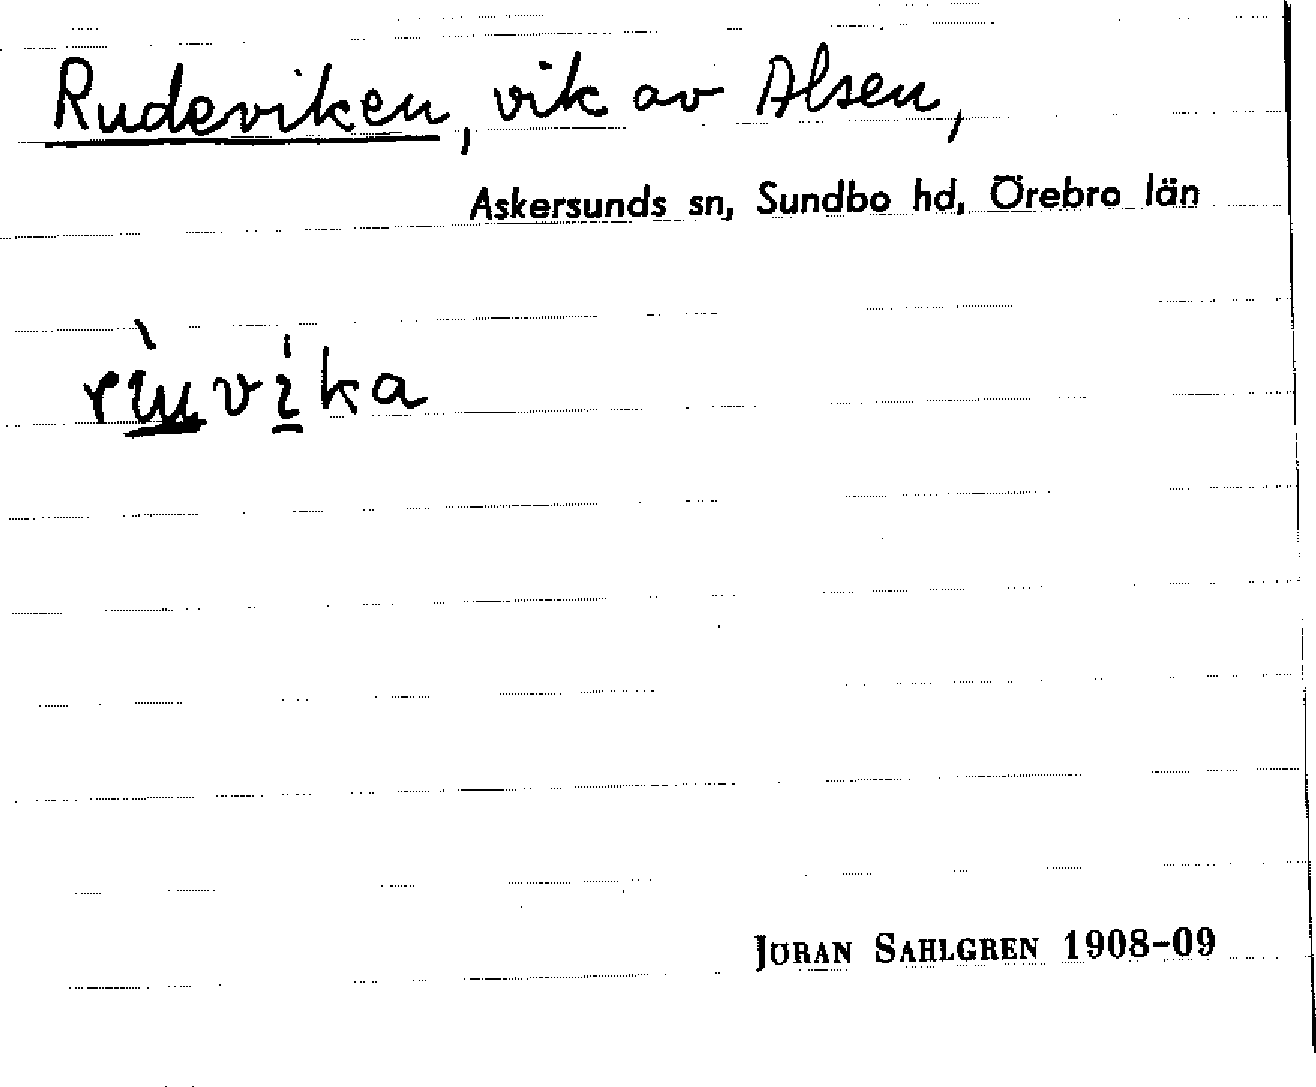 Rudeviken, vik av Alsen,
Askersunds sn, Sundbo hd, Örebro län
JÖRAN SAHLGREN 1908-09